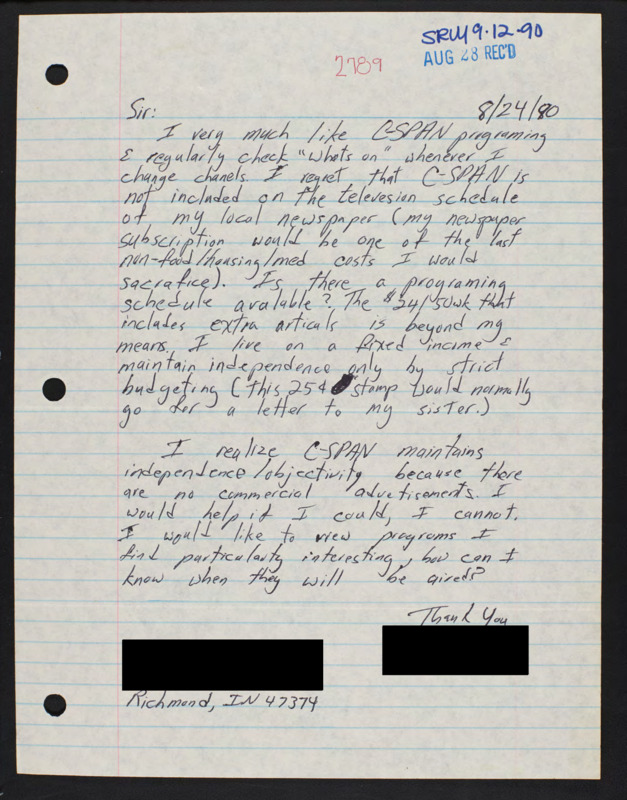 SRW 9·12·90
AUG 28 REC'D
2789
8/24/90
Sir:
I very much like C-SPAN programing
& regularly check "Whats on" whenever I
change chanels. I regret that C-SPAN is
not included on the televesion schedule
of my local newspaper (my newspaper
subscription would be one of the last
non-food/housing/med costs I would
sacrafice). Is there a programing
schedule avalable? The $24/50wk that
includes extra articals is beyond my
means. I live on a fixed income &
maintain independence only by strict
budgeting (this 25¢ stamp would normally
go for a letter to my sister.)
I realize C-SPAN maintains
independence/objectivity because there
are no commercial advertisements. I
would help if I could, I cannot.
I would like to view programs I
find particularly interesting, how can I
know when they will be aired?
Thank You
Richmond, IN 47374